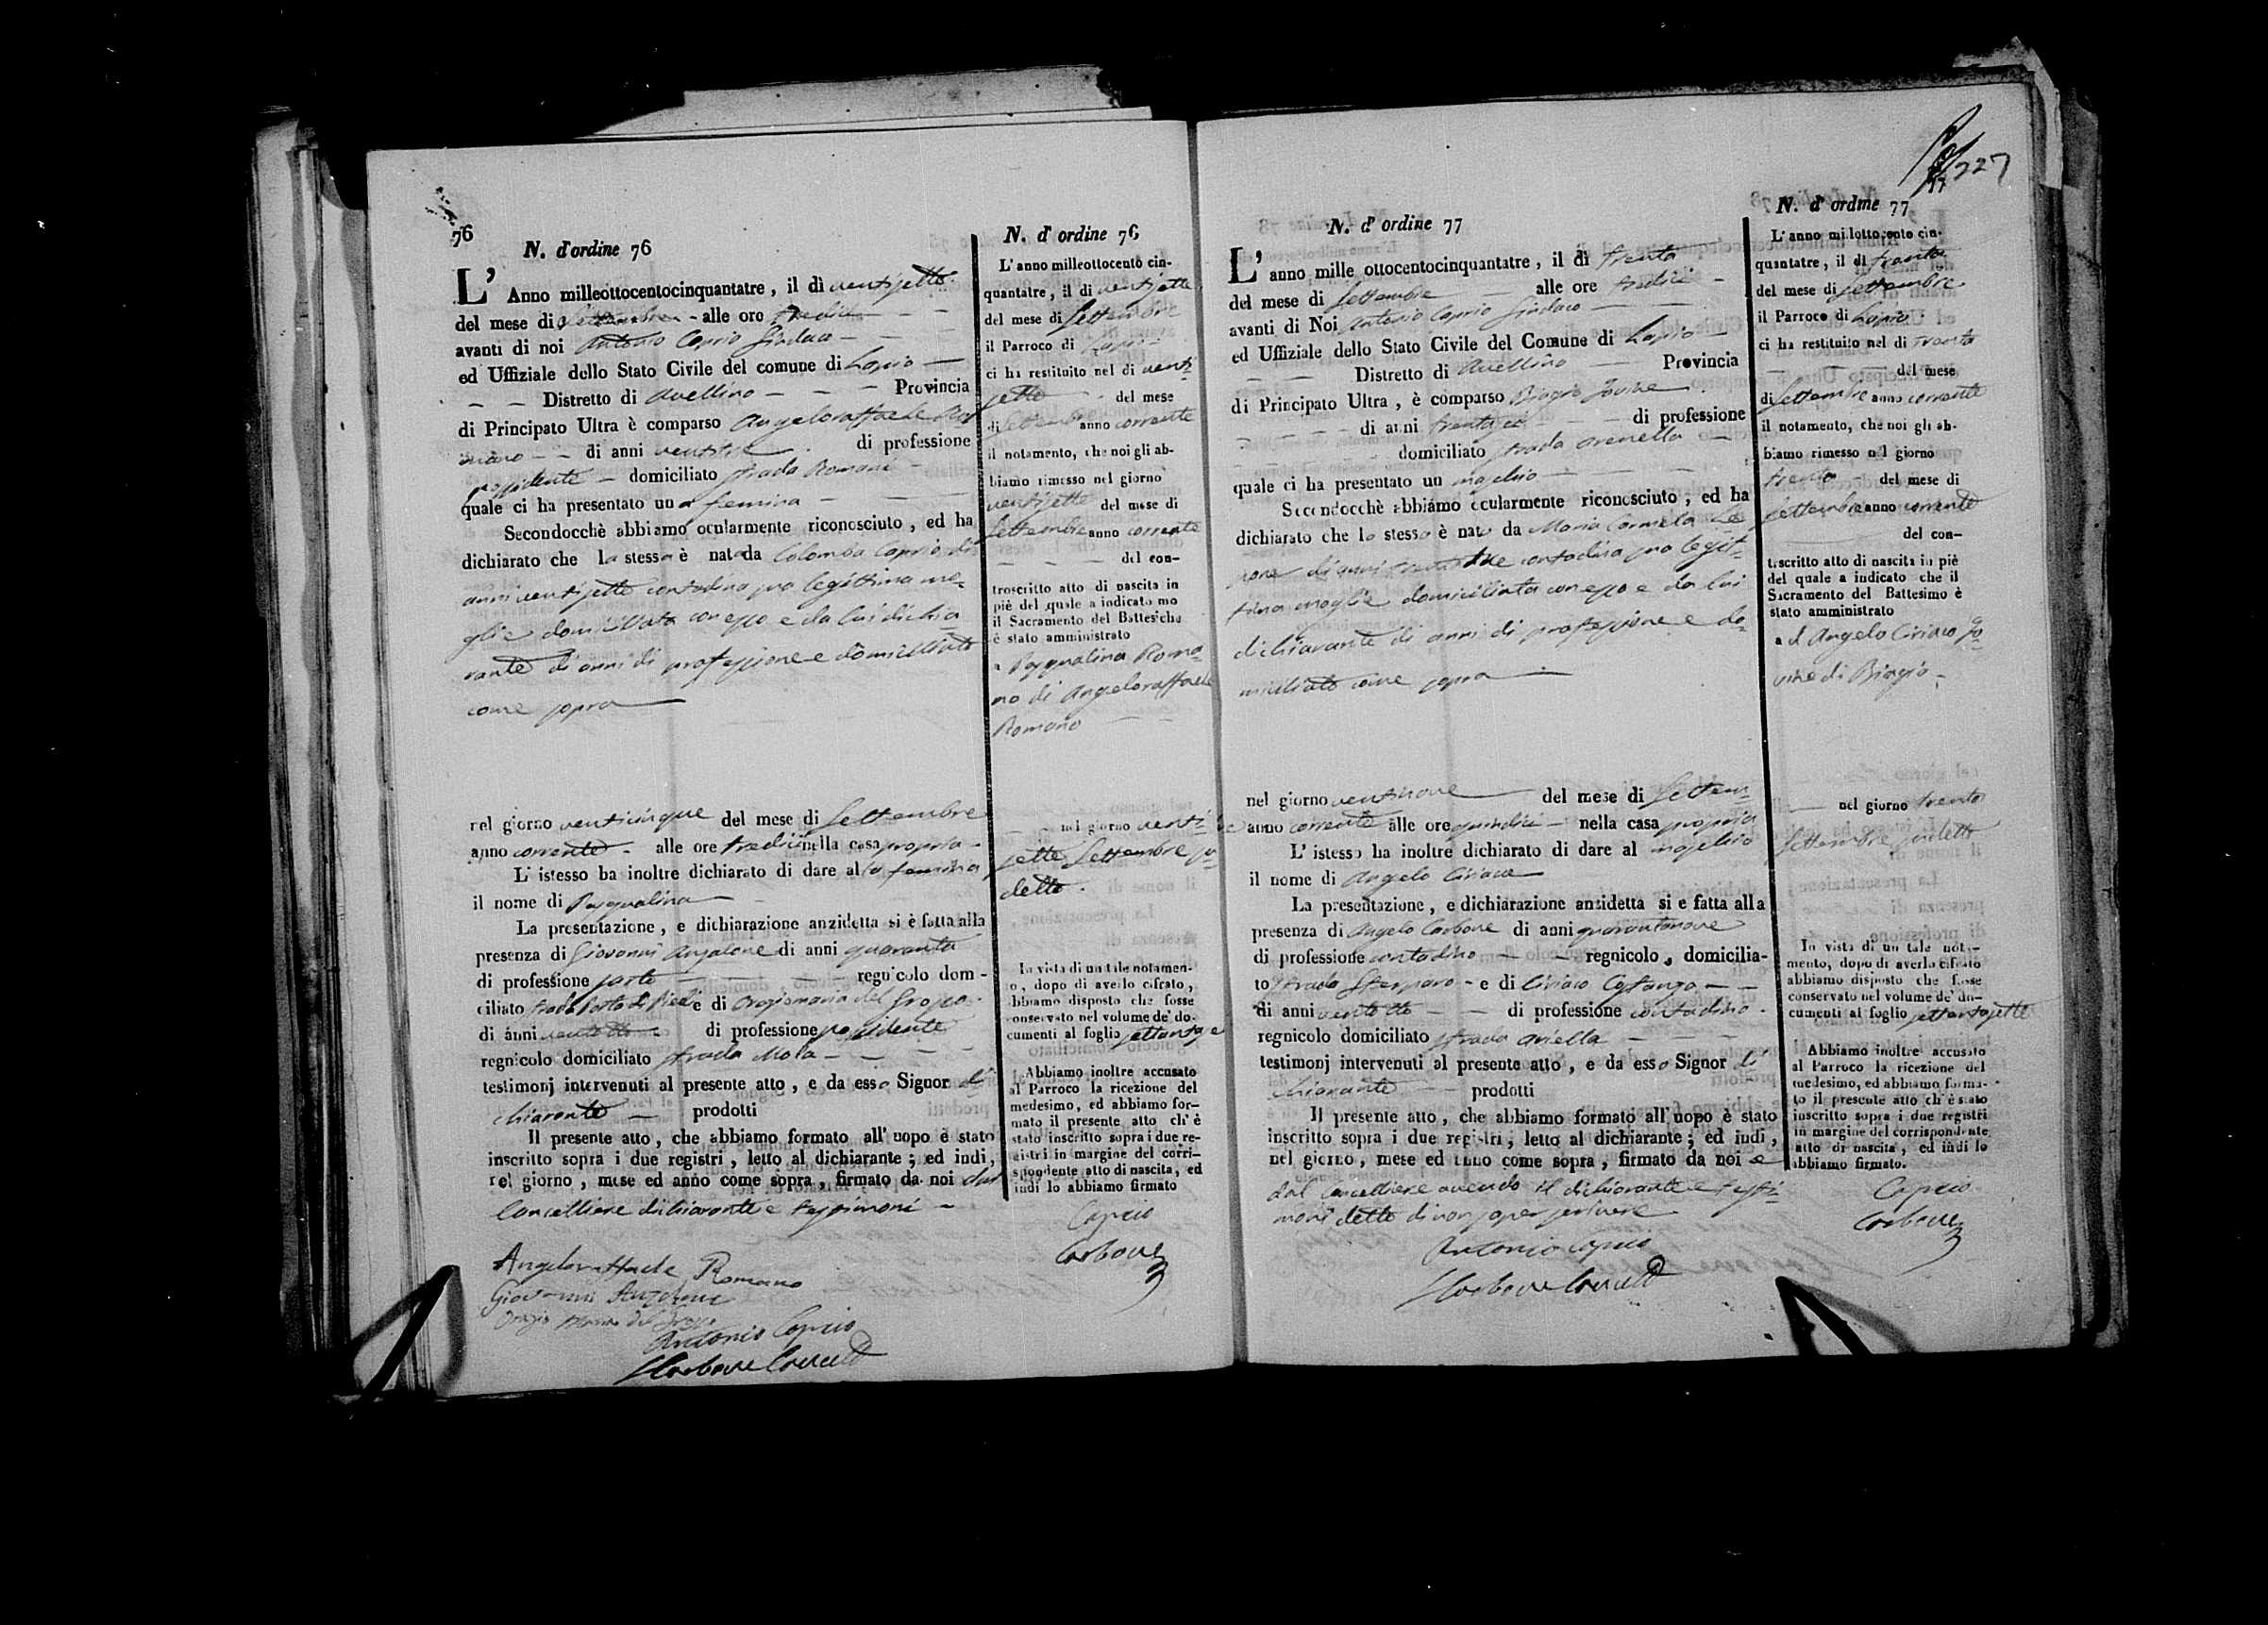 76
N. d'ordine 76
L' Anno milleottocentocinquantatre, il dì ventisette
del mese di Settembre - alle ore tredici
avanti di noi Antonio Caprio Sindaco
ed Uffiziale dello Stato Civile del comune di Lapio
Distretto di Avellino Provincia
di Principato Ultra è comparso Angeloraffaele Ro
mano di anni di professione
possidente domiciliato strada Romani
quale ci ha presentato una femina
Secondocchè abbiamo ocularmente riconosciuto, ed ha
dichiarato che la stessa è nata da Colomba Caprio di
anni ventisette contadina sua legittima mo=
glie domiciliata con esso e da lui dichia
rante di anni di professione e domiciliato
come sopra
nel giorno venticinque del mese di Settembre
anno corrente alle ore tredici nella casa propria
L' istesso ha inoltre dichiarato di dare alla femina
il nome di Pasqualina
La presentazione, e dichiarazione anzidetta si è fatta alla
presenza di Giovanni Anzalone di anni quaranta
di professione sarto regnicolo dom-
ciliato strada e di Oraziomaria del Grosso
di anni ventotto di professione possidente
regnicolo domiciliato strada Mola
testimonj intervenuti al presente atto, e da esso Signor di
chiarante prodotti
Il presente atto, che abbiamo formato all' uopo è stato
inscritto sopra i due registri, letto al dichiarante; ed indi,
nel giorno, mese ed anno come sopra, firmato da noi dal
Cancelliere dichiarante e testimoni
Angeloraffaele Romano
Giovanni Anzalone
Orazio Maria del Grosso
Antonio Caprio
Carbone
N. d' ordine 76
L' anno milleottocento cin-
quantatre, il di ventisette
del mese di Settembre
il Parroco di Lapio
ci ha restituito nel di venti
sette del mese
di Settembre anno corrente
il notamento, che noi gli ab-
biamo rimesso nel giorno
ventisette del mese di
Settembre anno corrente
del con-
troscritto atto di nascita in
piè del quale a indicato mo
il Sacramento del Battes'che
è stato amministrato
a Pasqualina Roma=
no di Angeloraffaele
Romano
nel giorno venti=
sette Settembre su=
detto.
In vista di un tale notamen-
o, dopo di averlo cifrato,
abbiamo disposto che fosse
conservato nel volume de' do-
cumenti al foglio settantase
Abbiamo inoltre accusato
al Parroco la ricezione del
medesimo, ed abbiamo for-
mato il presente atto ch' è
stato inscritto sopra i due re-
gistri in margine del corri-
spondente atto di nascita, ed
indi lo abbiamo firmato
Caprio
Carbone
227
N. d' ordine 77
L' anno mille ottocentocinquantatre, il dì trenta
del mese di Settembre alle ore tredici
avanti di Noi Antonio Caprio Sindaco
ed Uffiziale dello Stato Civile del Comune di Lapio
Distretto di Avellino Provincia
di Principato Ultra, è comparso Biagio Iovine
di anni trentasei di professione
domiciliato strada Arenella
quale ci ha presentato un maschio
Secondocchè abbiamo ocularmente riconosciuto, ed ha
dichiarato che lo stesso è nato da Maria Carmela
di anni contadina sua legit=
tima moglie domiciliata con esso e da lui
dichiarante di anni di professione e do=
miciliato come sopra
nel giorno ventinove del mese di Settem=
anno corrente alle ore quindici nella casa propria
L' istesso ha inoltre dichiarato di dare al maschio
il nome di Angelo Ciriaco
La presentazione, e dichiarazione antidetta si e fatta alla
presenza di Angelo Carbone di anni quarantanove
di professione contadino regnicolo, domicilia-
to strada e di Ciriaco Costanza
di anni ventotto di professione contadino
regnicolo domiciliato strada Ariella
testimonj intervenuti al presente atto, e da esso Signor di
chiarante prodotti
Il presente atto, che abbiamo formato all' uopo è stato
inscritto sopra i due registri, letto al dichiarante; ed indi,
nel giorno, mese ed anno come sopra, firmato da noi e
dal Cancelliere avendo il dichiarante e testi=
moni detto di non saper scrivere
Antonio Caprio
Carbone
N. d' ordine 77
L' anno milleottocento cin-
quantatre, il dì trenta
del mese di Settembre
il Parroco di Lapio
ci ha restituito nel di trenta
del mese
di Settembre anno corrente
il notamento, che noi gli ab-
biamo rimesso nel giorno
trenta del mese di
Settembre anno corrente
del con-
trscritto atto di nascita in piè
del quale a indicato che il
Sacramento del Battesimo è
stato amministrato
a d Angelo Ciriaco Jo=
vine di Biagio
nel giorno trenta
Settembre sudetto
In vista di un tale nota-
mento, dopo di averlo cifrato
abbiamo disposto che fosse
conservato nel volume de' do-
cumenti al foglio settantasette
Abbiamo inoltre accusato
al Parroco la ricezione del
medesimo, ed abbiamo forma-
to il presente atto ch' è stato
inscritto sopra i due registri
in margine del corrispondente
atto di nascita, ed indi lo
abbiamo firmato.
Caprio
Carbone